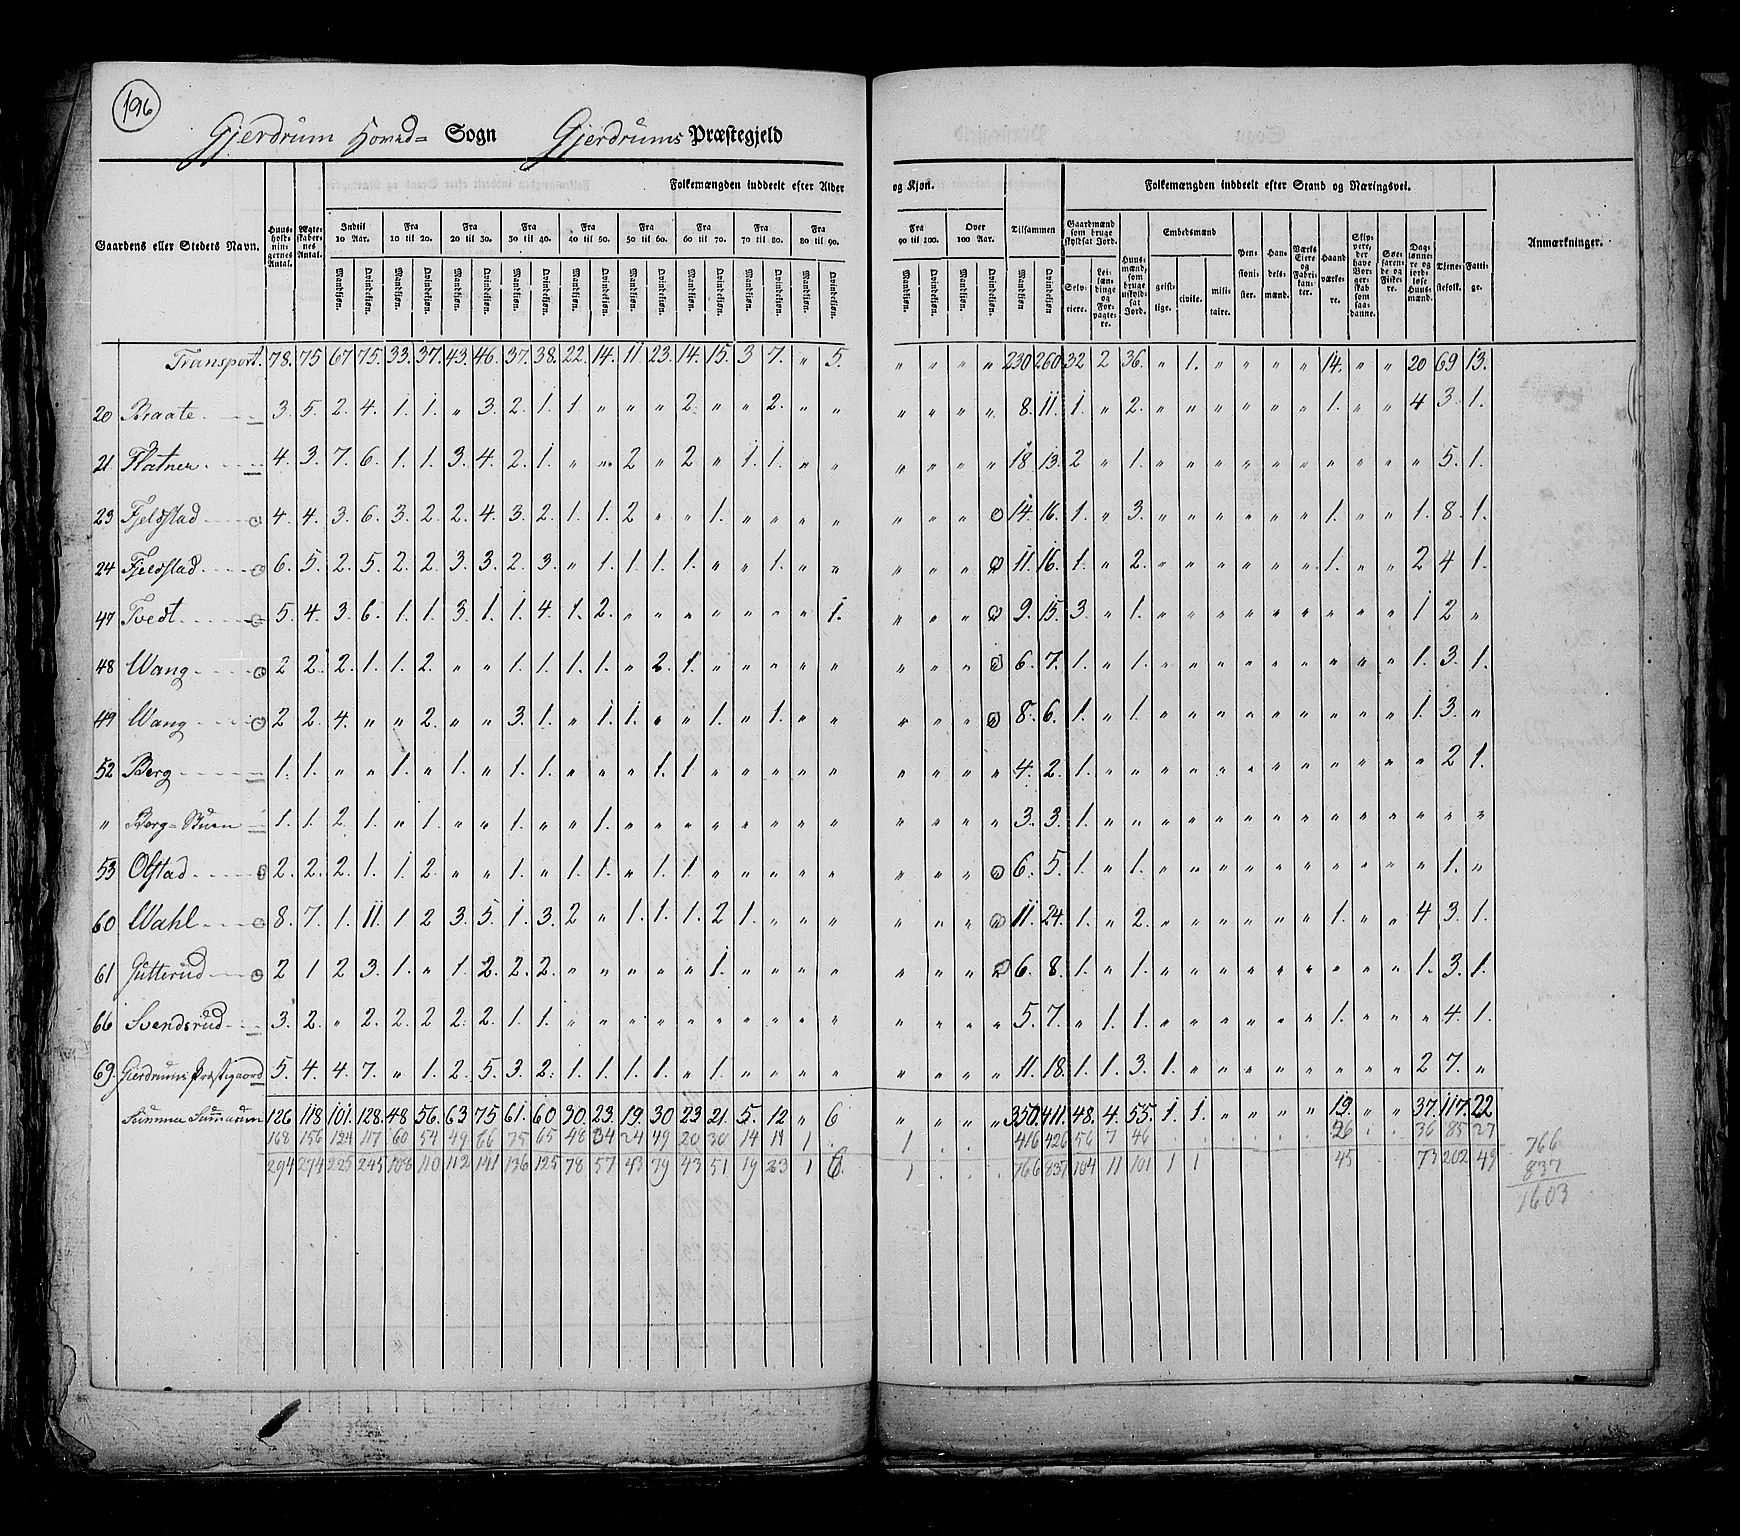 196
Gjerdrum Hoved= Sogn Gjerdrums Præstegjeld
Folkemængden inddeelt efter Alder og Kjøn. Folkemængden inddeelt efter Stand og Næringsvei.
Gaardens eller Stedets Navn. Huusholdningernes Antal. Ægteskabernes Antal. Indtil 10 Aar. Fra 10 til 20. Fra 20 til 30. Fra 30 til 40. Fra 40 til 50. Fra 50 til 60. Fra 60 til 70. Fra 70 til 80. Fra 80 til 90. Fra 90 til 100. Over 100 Aar. Tilsammen Gaardmænd som bruge skyldsat Jord. Huusmænd, som bruge uskyldsat Jord. Embedsmænd Pensionister. Handelsmænd. Værks Eiere og Fabrikanter. Haandværkere. Skippere, der have Borgerskab som saadanne. Søefarende og Fiskere. Daglønnere og jordløse Huusmænd. Tjenestefolk. Fattige. Anmærkninger.
Mandkjøn. Qvindekjøn. Mandkjøn. Qvindekjøn. Mandkjøn. Qvindekjøn. Mandkjøn. Qvindekjøn. Mandkjøn. Qvindekjøn. Mandkjøn. Qvindekjøn. Mandkjøn. Qvindekjøn. Mandkjøn. Qvindekjøn. Mandkjøn. Qvindekjøn. Mandkjøn. Qvindekjøn. Mandkjøn. Qvindekjøn. Mandkjøn. Qvindekjøn. Selveiere. Leilændinge og Forpagtere. geistlige. civile. militaire.
Transport. 78. 75 67. 75. 33. 37. 43. 46. 37. 38. 22. 14. 11. 23. 14. 15. 3 7. " 5. " " " " 230 260 32 2 36. " 1. " " " " 14. " " 20 69 13.
20 Braate 3. 5. 2. 4. 1. 1. " 3. 2. 1. 1 " " " 2. " " 2. " " " " " " 8. 11. 1. " 2. " " " " " " 1. " " 4 3. 1.
21. Flatner 4. 3. 7. 6. 1. 1. 3. 4. 2. 1. " " 2 " 2 " 1. 1. " " " " " " 18 13. 2 " 1. " " " " " " " " " " 5. 1.
23 Fjeldstad 4. 4. 3. 6. 3. 2. 2. 4. 3. 2. 1. 1. 2 " " 1. " " " " " " " 14. 16. 1. " 3. " " " " " " 1. " " 1. 8. 1.
24 Fjeldstad 6. 5. 2. 5. 2. 2. 3. 3. 2. 3. " 1. 1. 1. 1. " " 1. " " " " " 11. 16. 1. " 2. " " " " " " 1. " " 2 4 1.
47 Tvedt 5. 4. 3. 6. 1. 1. 3. 1. 1. 4. 1. 2. " " " " " " " 1. " " " 9. 15. 3. " 1. " " " " " " " " " 1 2 "
48 Wang 2 2. 2. 1. 1. 2. " " 1. 1. 1. 1. " 2. 1. " " " " " " " " 6. 7. 1. " 1. " " " " " " " " " 1. 3. 1.
49 Wang 2 2. 4. " " 2. " " 3. 1. " 1. 1. " " 1. " 1. " " " " " 8. 6. 1. " 1. " " " " " " " " " 1. 3. "
52 Berg 1. 1. " " 1. " 1. " 1. 1. " " " 1. 1 " " " " " " " " " 4. 2. 1. " " " " " " " " " " " " 2 1.
" Berg=Buen 1. 1. 2. 1. " 1. " " 1. " " 1. " " " " " " " " " " " " 3. 3. 1. " " " " " " " " " " " " " "
53 Olstad 2. 2. 2. 1. 1. 2. " " 1. " 1. 1. " 1. 1. " " " " " " " " 6. 5. 1. " 1. " " " " " " " " " " 1. "
60 Wahl 8. 7. 1. 11. 1. 2 3. 5. 1. 3. 2 " 1. 1. 1. 2 1. " " " " " " 11. 24. 1. " 2. " " " " " " 1. " " 4 3. 1.
61 Jutterud 2 1 2 3. 1. " 1. 2. 2. 2. " " " " " 1. " " " " " " " 6. 8. 1. " 1. " " " " " " " " " 1. 3. 1.
66 Svendsrud 3. 2. " 2. 2. 2 2. 2. 1. 1. " " " " " " " " " " " " " " 5. 7. " 1. 1. " " " " " " 1. " " " 4. 1.
69. Gjerdrums Præstegaard 5. 4. 4. 7. " 1. 2. 5. 3. 2. 1. 1. 1. 1. " 1. " " " " " " " " 11. 18. 1. 1. 3. 1. " " " " " " " " 2 7. "
Summa Summarum 126 118 101. 128. 48 56. 63 75 61. 60 30. 23. 19. 30 23 21. 5. 12 " 6 " " " " 350. 411. 48. 4. 55. 1. 1. " " " " 19. " " 37. 117. 22
168 156 124 117 60 54 49 66 75 65 48 34 24 49 20 30 14 11 1 1 416 426 56 7 46 26 36 85 27
294 274 225 245 108 110 112 141 136 125 78 57 43 79 43 51 19 23 1 6 1 766 837 104 11 101 1 1 45 73 202 49
766
837
1603